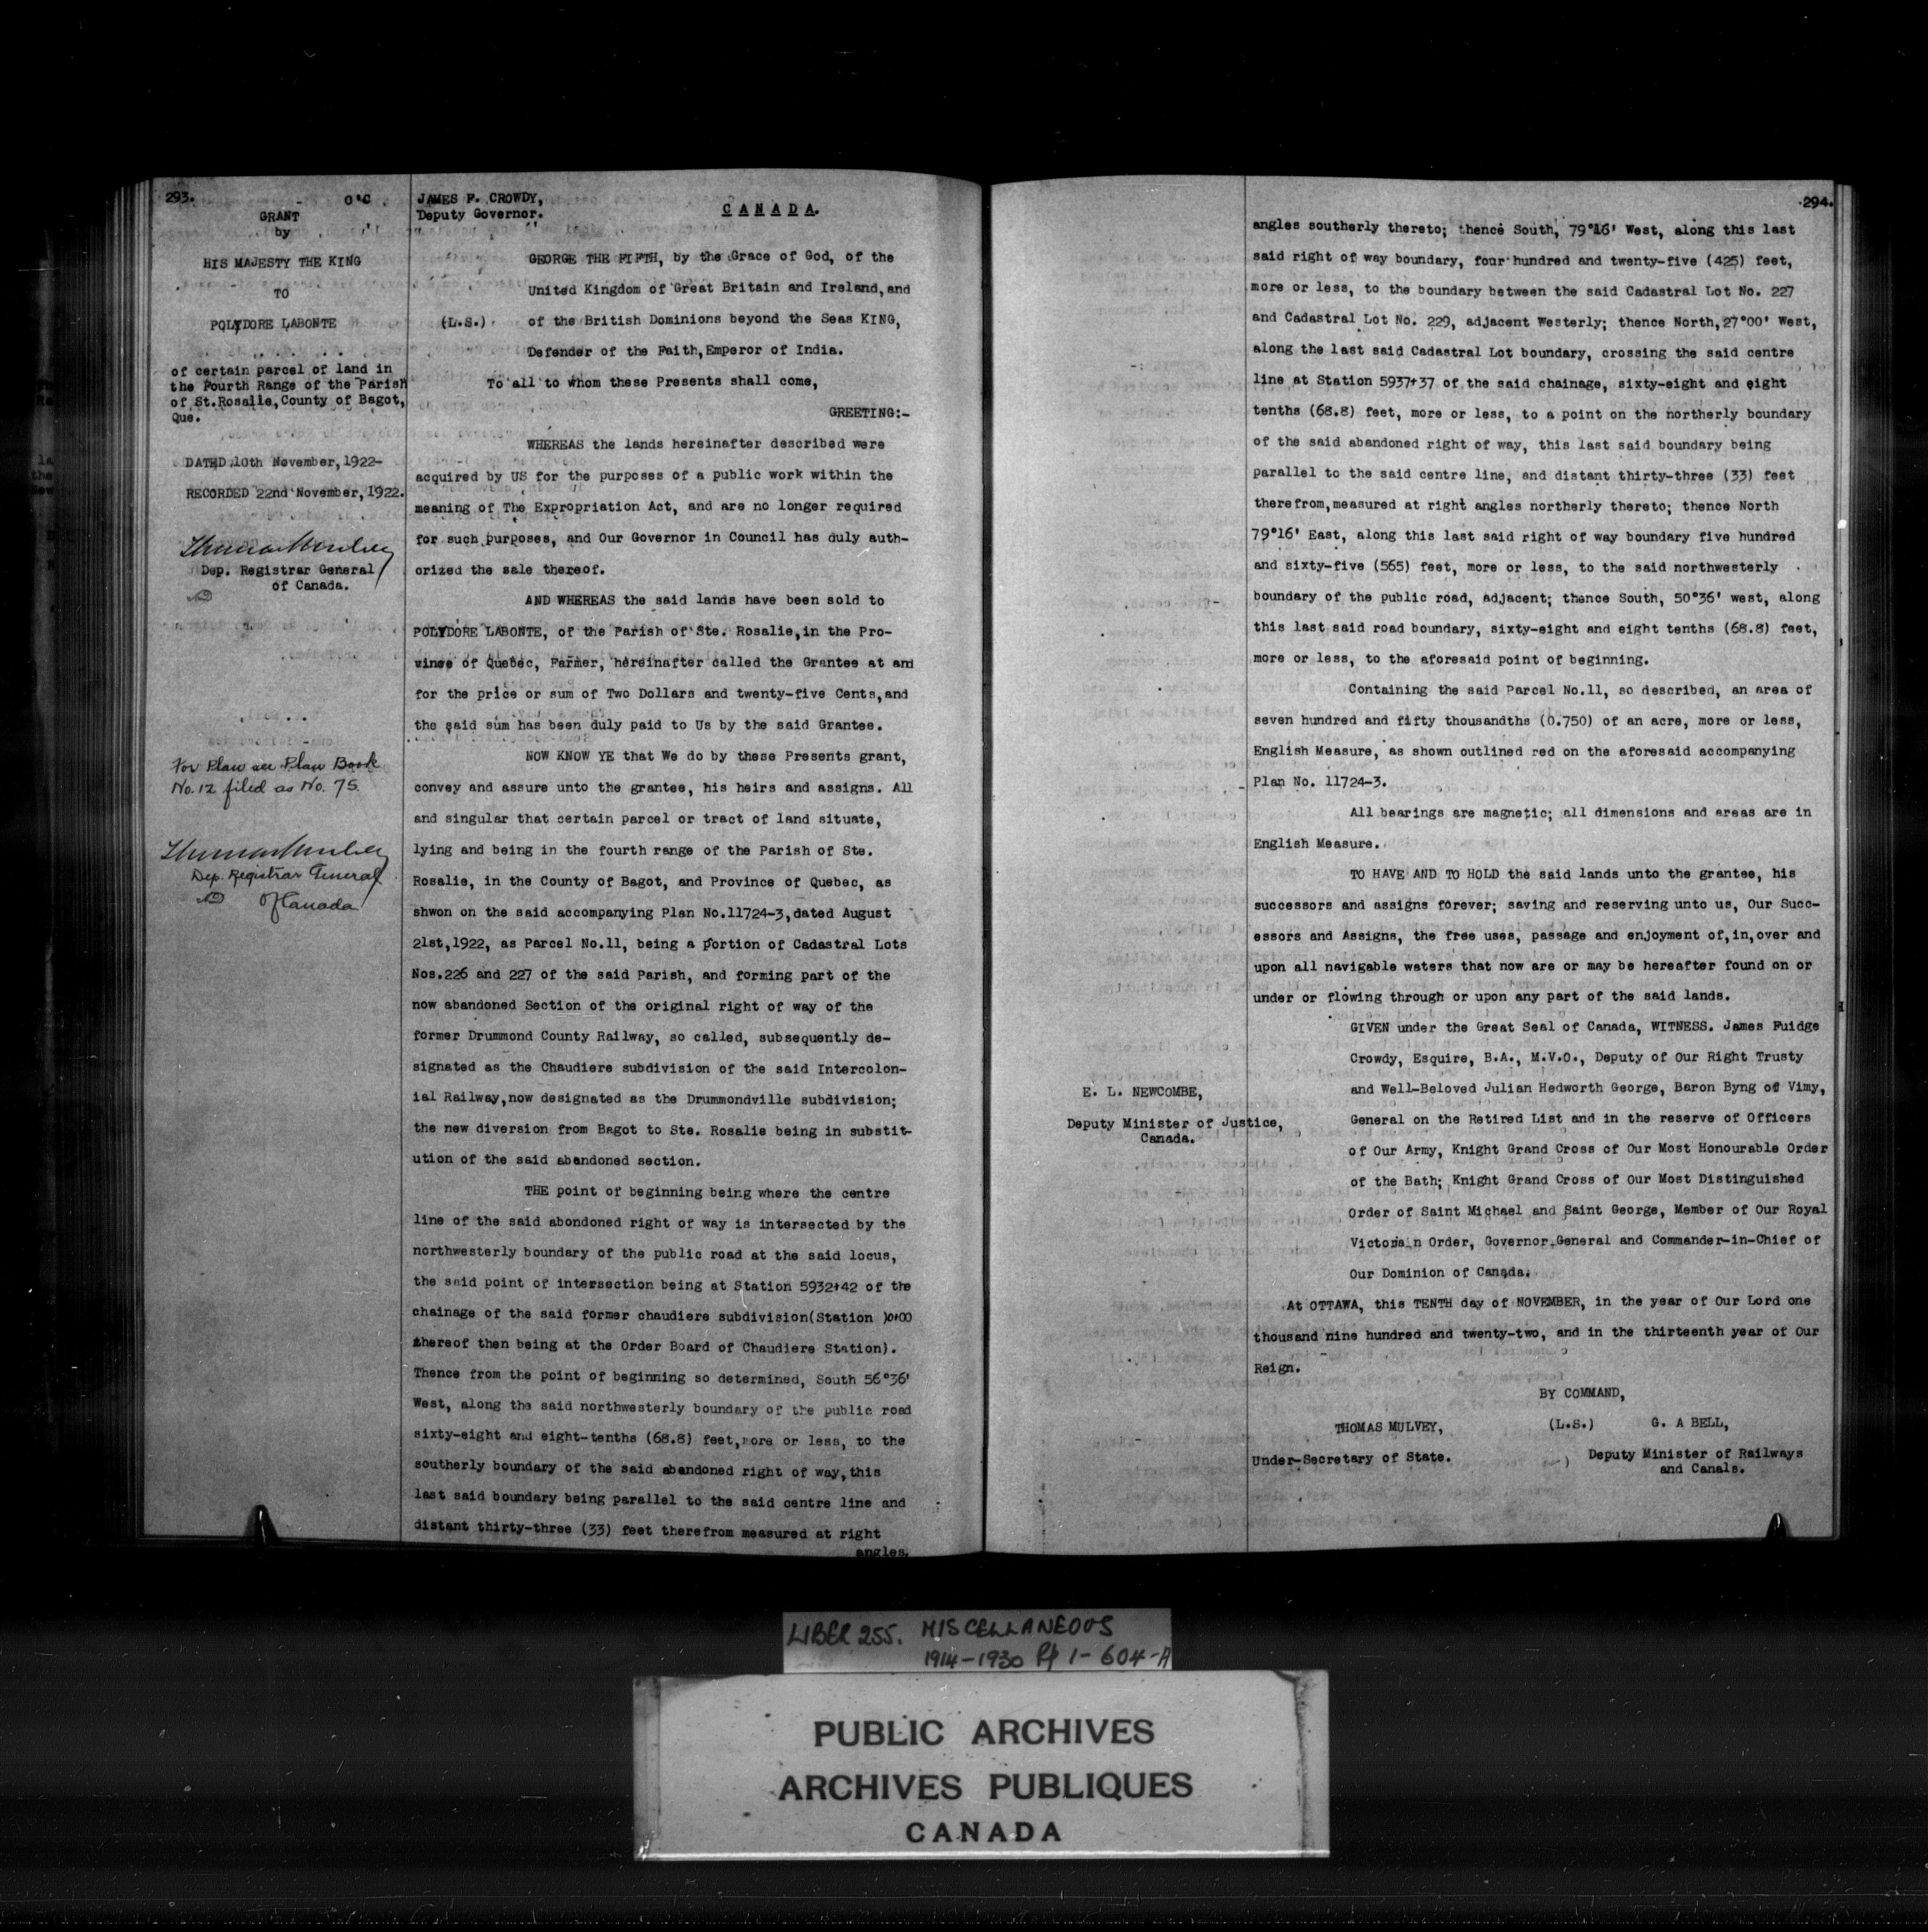 293.
O'C
GRANT
by
HIS MAJESTY THE KING
TO
POLYDORE LABONTE
of certain parcel of land in
the Fourth Range of the Parish
of St.Rosalie, County of Bagot,
Que.
DATED 10th November, 1922-
RECORDED 22nd November, 1922.
Thomas Mulvey
Dep. Registrar General
of Canada.
For Plan see Plan Book
No. 12 filed as No. 75.
Thomas Mulvey
Dep. Registrar General
Of Canada
JAMES F. CROWDY,
Deputy Governor.
CANADA.
GEORGE THE FIFTH, by the Grace of God, of the
United Kingdom of Great Britain and Ireland, and
(L.S.) of the British Dominions beyond the Seas KING,
Defender of the Faith, Emperor of India.
To all to whom these Presents shall come,
GREETING:-
WHEREAS the lands hereinafter described were
acquired by US for the purposes of a public work within the
meaning of The Expropriation Act, and are no longer required
for such purposes, and Our Governor in Council has duly auth-
orized the sale thereof.
AND WHEREAS the said lands have been sold to
POLYDORE LABONTE, of the Parish of Ste. Rosalie, in the Pro-
vince of Quebec, Farmer, hereinafter called the Grantee at and
for the price or sum of Two Dollars and twenty-five Cents, and
the said sum has been duly paid to Us by the said Grantee.
NOW KNOW YE that We do by these Presents grant,
convey and assure unto the grantee, his heirs and assigns. All
and singular that certain parcel or tract of land situate,
lying and being in the fourth range of the Parish of Ste.
Rosalie, in the County of Bagot, and Province of Quebec, as
shwon on the said accompanying Plan No.11724-3, dated August
21st, 1922, as Parcel No.11, being a portion of Cadastral Lots
Nos.226 and 227 of the said Parish, and forming part of the
now abandoned Section of the original right of way of the
former Drummond County Railway, so called, subsequently de-
signated as the Chaudiere subdivision of the said Intercolon-
ial Railway, now designated as the Drummondville subdivision;
the new diversion from Bagot to Ste. Rosalie being in substit-
ution of the said abandoned section.
THE point of beginning being where the centre
line of the said abondoned right of way is intersected by the
northwesterly boundary of the public road at the said locus,
the said point of intersection being at Station 5932+42 of the
chainage of the said former chaudiere subdivision(Station )0+00
thereof then being at the Order Board of Chaudiere Station).
Thence from the point of beginning so determined, South 56°36'
West, along the said northwesterly boundary of the public road
sixty-eight and eight-tenths (68.8) feet, more or less, to the
southerly boundary of the said abandoned right of way, this
last said boundary being parallel to the said centre line and
distant thirty-three (33) feet therefrom measured at right
angles.
294.
angles southerly thereto; thence South, 79°16' West, along this last
said right of way boundary, four hundred and twenty-five (425) feet,
more or less, to the boundary between the said Cadastral Lot No. 227
and Cadastral Lot No. 229, adjacent Westerly; thence North, 27°00' West,
along the last said Cadastral Lot boundary, crossing the said centre
line at Station 5937+37 of the said chainage, sixty-eight and eight
tenths (68.8) feet, more or less, to a point on the northerly boundary
of the said abandoned right of way, this last said boundary being
parallel to the said centre line, and distant thirty-three (33) feet
therefrom, measured at right angles northerly thereto; thence North
79°16' East, along this last said right of way boundary five hundred
and sixty-five (565) feet, more or less, to the said northwesterly
boundary of the public road, adjacent; thence South, 50°36' west, along
this last said road boundary, sixty-eight and eight tenths (68.8) feet,
more or less, to the aforesaid point of beginning.
Containing the said Parcel No.11, so described, an area of
seven hundred and fifty thousandths (0.750) of an acre, more or less,
English Measure, as shown outlined red on the aforesaid accompanying
Plan No. 11724-3.
All bearings are magnetic; all dimensions and areas are in
English Measure.
TO HAVE AND TO HOLD the said lands unto the grantee, his
successors and assigns forever; saving and reserving unto us, Our Succ-
essors and Assigns, the free uses, passage and enjoyment of, in, over and
upon all navigable waters that now are or may be hereafter found on or
under or flowing through or upon any part of the said lands.
GIVEN under the Great Seal of Canada, WITNESS. James Fuidge
Crowdy, Esquire, B.A., M.V.O., Deputy of Our Right Trusty
and Well-Beloved Julian Hedworth George, Baron Byng of Vimy,
General on the Retired List and in the reserve of Officers
of Our Army, Knight Grand Cross of Our Most Honourable Order
of the Bath; Knight Grand Cross of Our Most Distinguished
Order of Saint Michael and Saint George, Member of Our Royal
Victorian Order, Governor General and Commander-in-Chief of
Our Dominion of Canada.
E. L. NEWCOMBE,
Deputy Minister of Justice,
Canada.
At OTTAWA, this TENTH day of NOVEMBER, in the year of Our Lord one
thousand nine hundred and twenty-two, and in the thirteenth year of Our
Reign.
BY COMMAND,
THOMAS MULVEY, (L.S.) G. A BELL,
Under-Secretary of State. ) Deputy Minister of Railways
and Canals.
LIBER 255. MISCELLANEOUS
1914-1930 Pp 1-604-A
PUBLIC ARCHIVES
ARCHIVES PUBLIQUES
CANADA